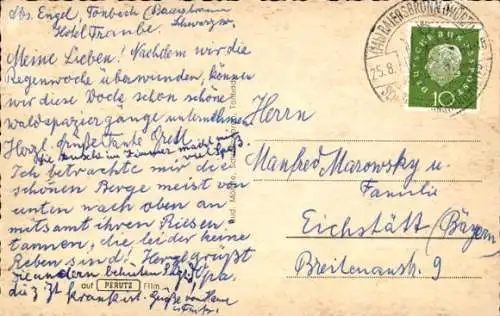 Abs. Engel, Tonbach (Baiersbronn
Schwarzw.
Hotel Traube.
Meine Lieben! Nachdem wir die
Regenwoche überwunden, können
wir diese Woche schon schöne
Waldspaziergänge unternehmen
Herzl. Grüße Tante Gretl
im Zimmer macht mir viel Spaß.
Ich betrachte mir die
schönen Berge meist von
unten nach oben an
mitsamt ihren Riesen
tannen, die leider keine
Reben sind! Herzl. grüßt
die andern
Opa.
die z. Zt.
Grüße von
auf PERUTZ Film
BAIERSBRONN
25.8.
DEUTSCHE BUNDESPOST
10
Herrn
Manfred Marowsky u.
Familie
Eichstätt (Bayern)
Breitenaustr. 9